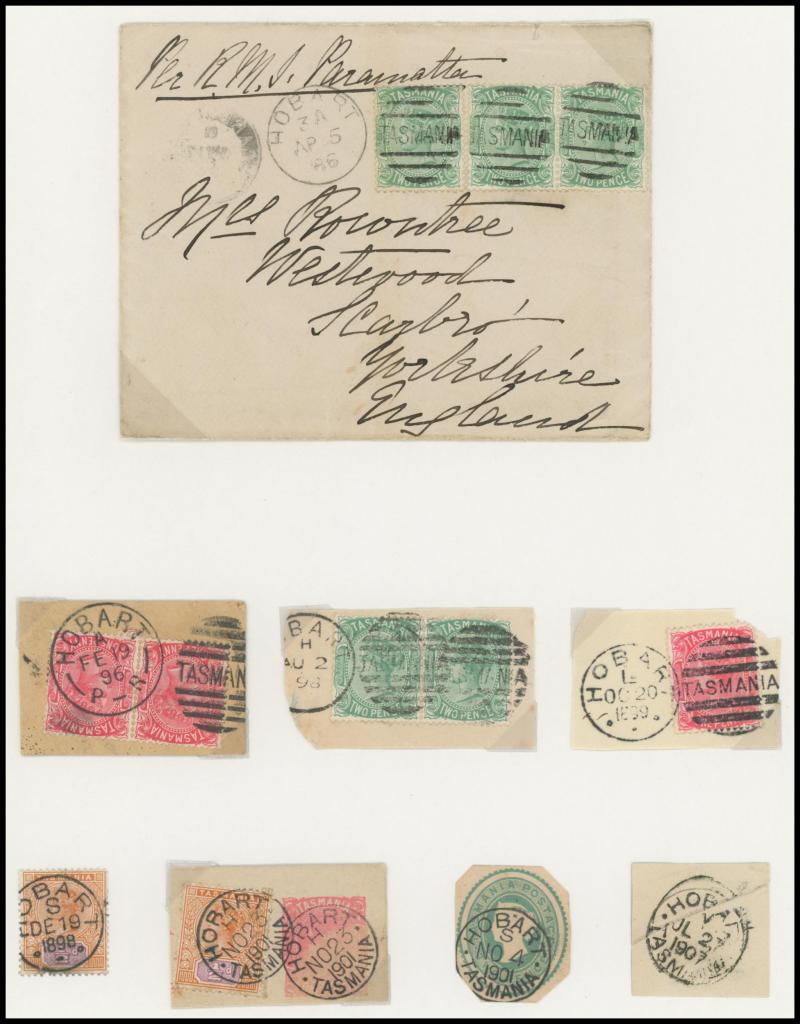 Per R.M.S. Paramatta
HOBART
3A
AP 5
86
TASMANIA TASMANIA TASMANIA
TASMANIA SMANIA TASMANIA
TWO PENCE TWO PENCE TWO PENCE
Mrs Rowntree
Westwood
Scarbro'
Yorkshire
England
HOBART
FE 19
96
P
TASMANIA
TASMANIA
OBART
H
AU 2
98
TASMANIA TASMANIA
NIA
TWO PENCE TWO PENCE
HOBAR
OC 20
1899
TASMANIA
TASMANIA
HOBART
S
DE 19
1898
TASMANIA
HOBART
NO 23
1901
TASMANIA
TASMANIA
HOBART
NO 23
1901
TASMANIA
MANIA POSTAG
HOBART
S
NO 4
1901
TASMANIA
HOBA
UL 2
190
TASMANIA